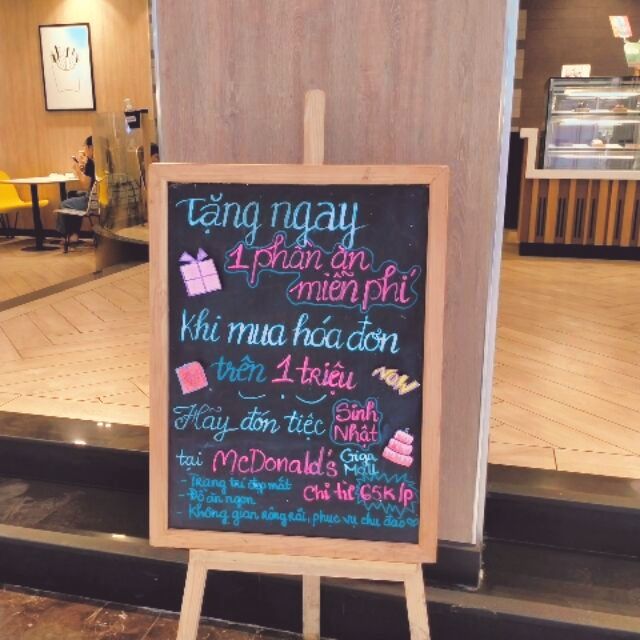 Tặng ngay
1 phần ăn
miễn phí
khi mua hóa đơn
trên 1 triệu
NOW
Hãy đón tiệc Sinh Nhật
tại McDonald's Giga Mall
- Trang trí đẹp mắt
Chỉ từ 65K/p
- Đồ ăn ngon
- Không gian rộng rãi, phục vụ chu đáo